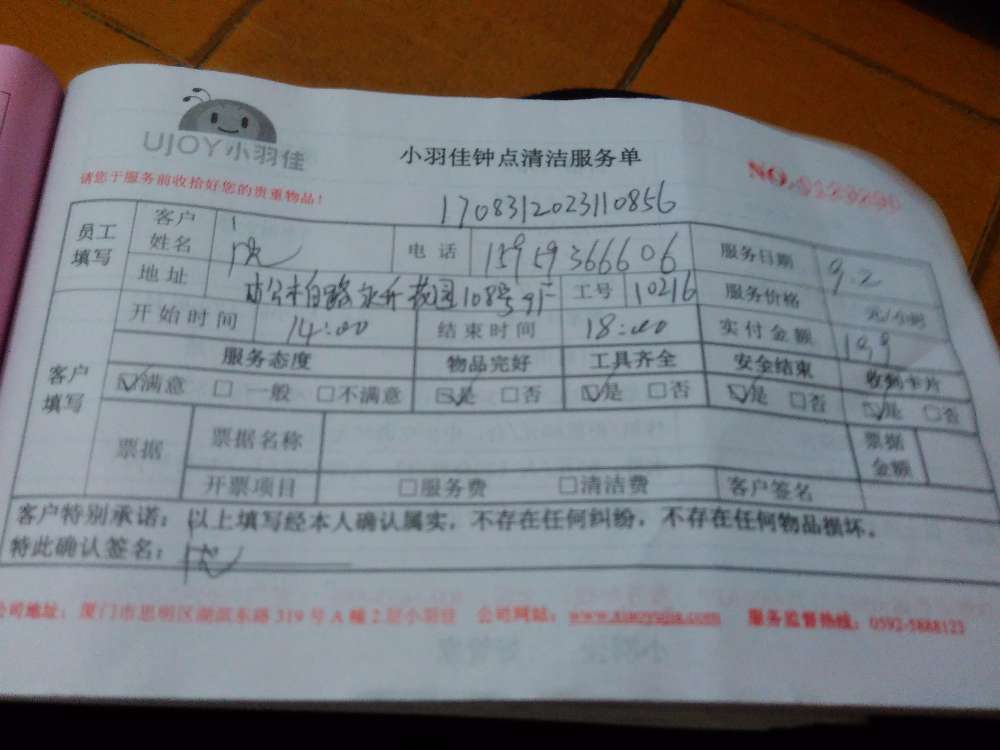 UJOY小羽佳
小羽佳钟点清洁服务单
NO.
请您于服务前收拾好您的贵重物品！
1708312023110856
员工填写 客户姓名 电话 15959366606 服务日期 9.2
地址 108号 工号 10216 服务价格 元/小时
客户填写 开始时间 14:00 结束时间 18:00 实付金额
服务态度 物品完好 工具齐全 安全结束 收到卡片
☑满意 □一般 □不满意 ☑是 □否 ☑是 □否 ☑是 □否 ☑是 □否
票据 票据名称 票据金额
开票项目 □服务费 □清洁费 客户签名
客户特别承诺：以上填写经本人确认属实，不存在任何纠纷，不存在任何物品损坏。
特此确认签名：
公司地址：厦门市思明区湖滨东路319号A幢2层小羽佳 公司网站：www.xiaoyujia.com 服务监督热线：0592-5888123